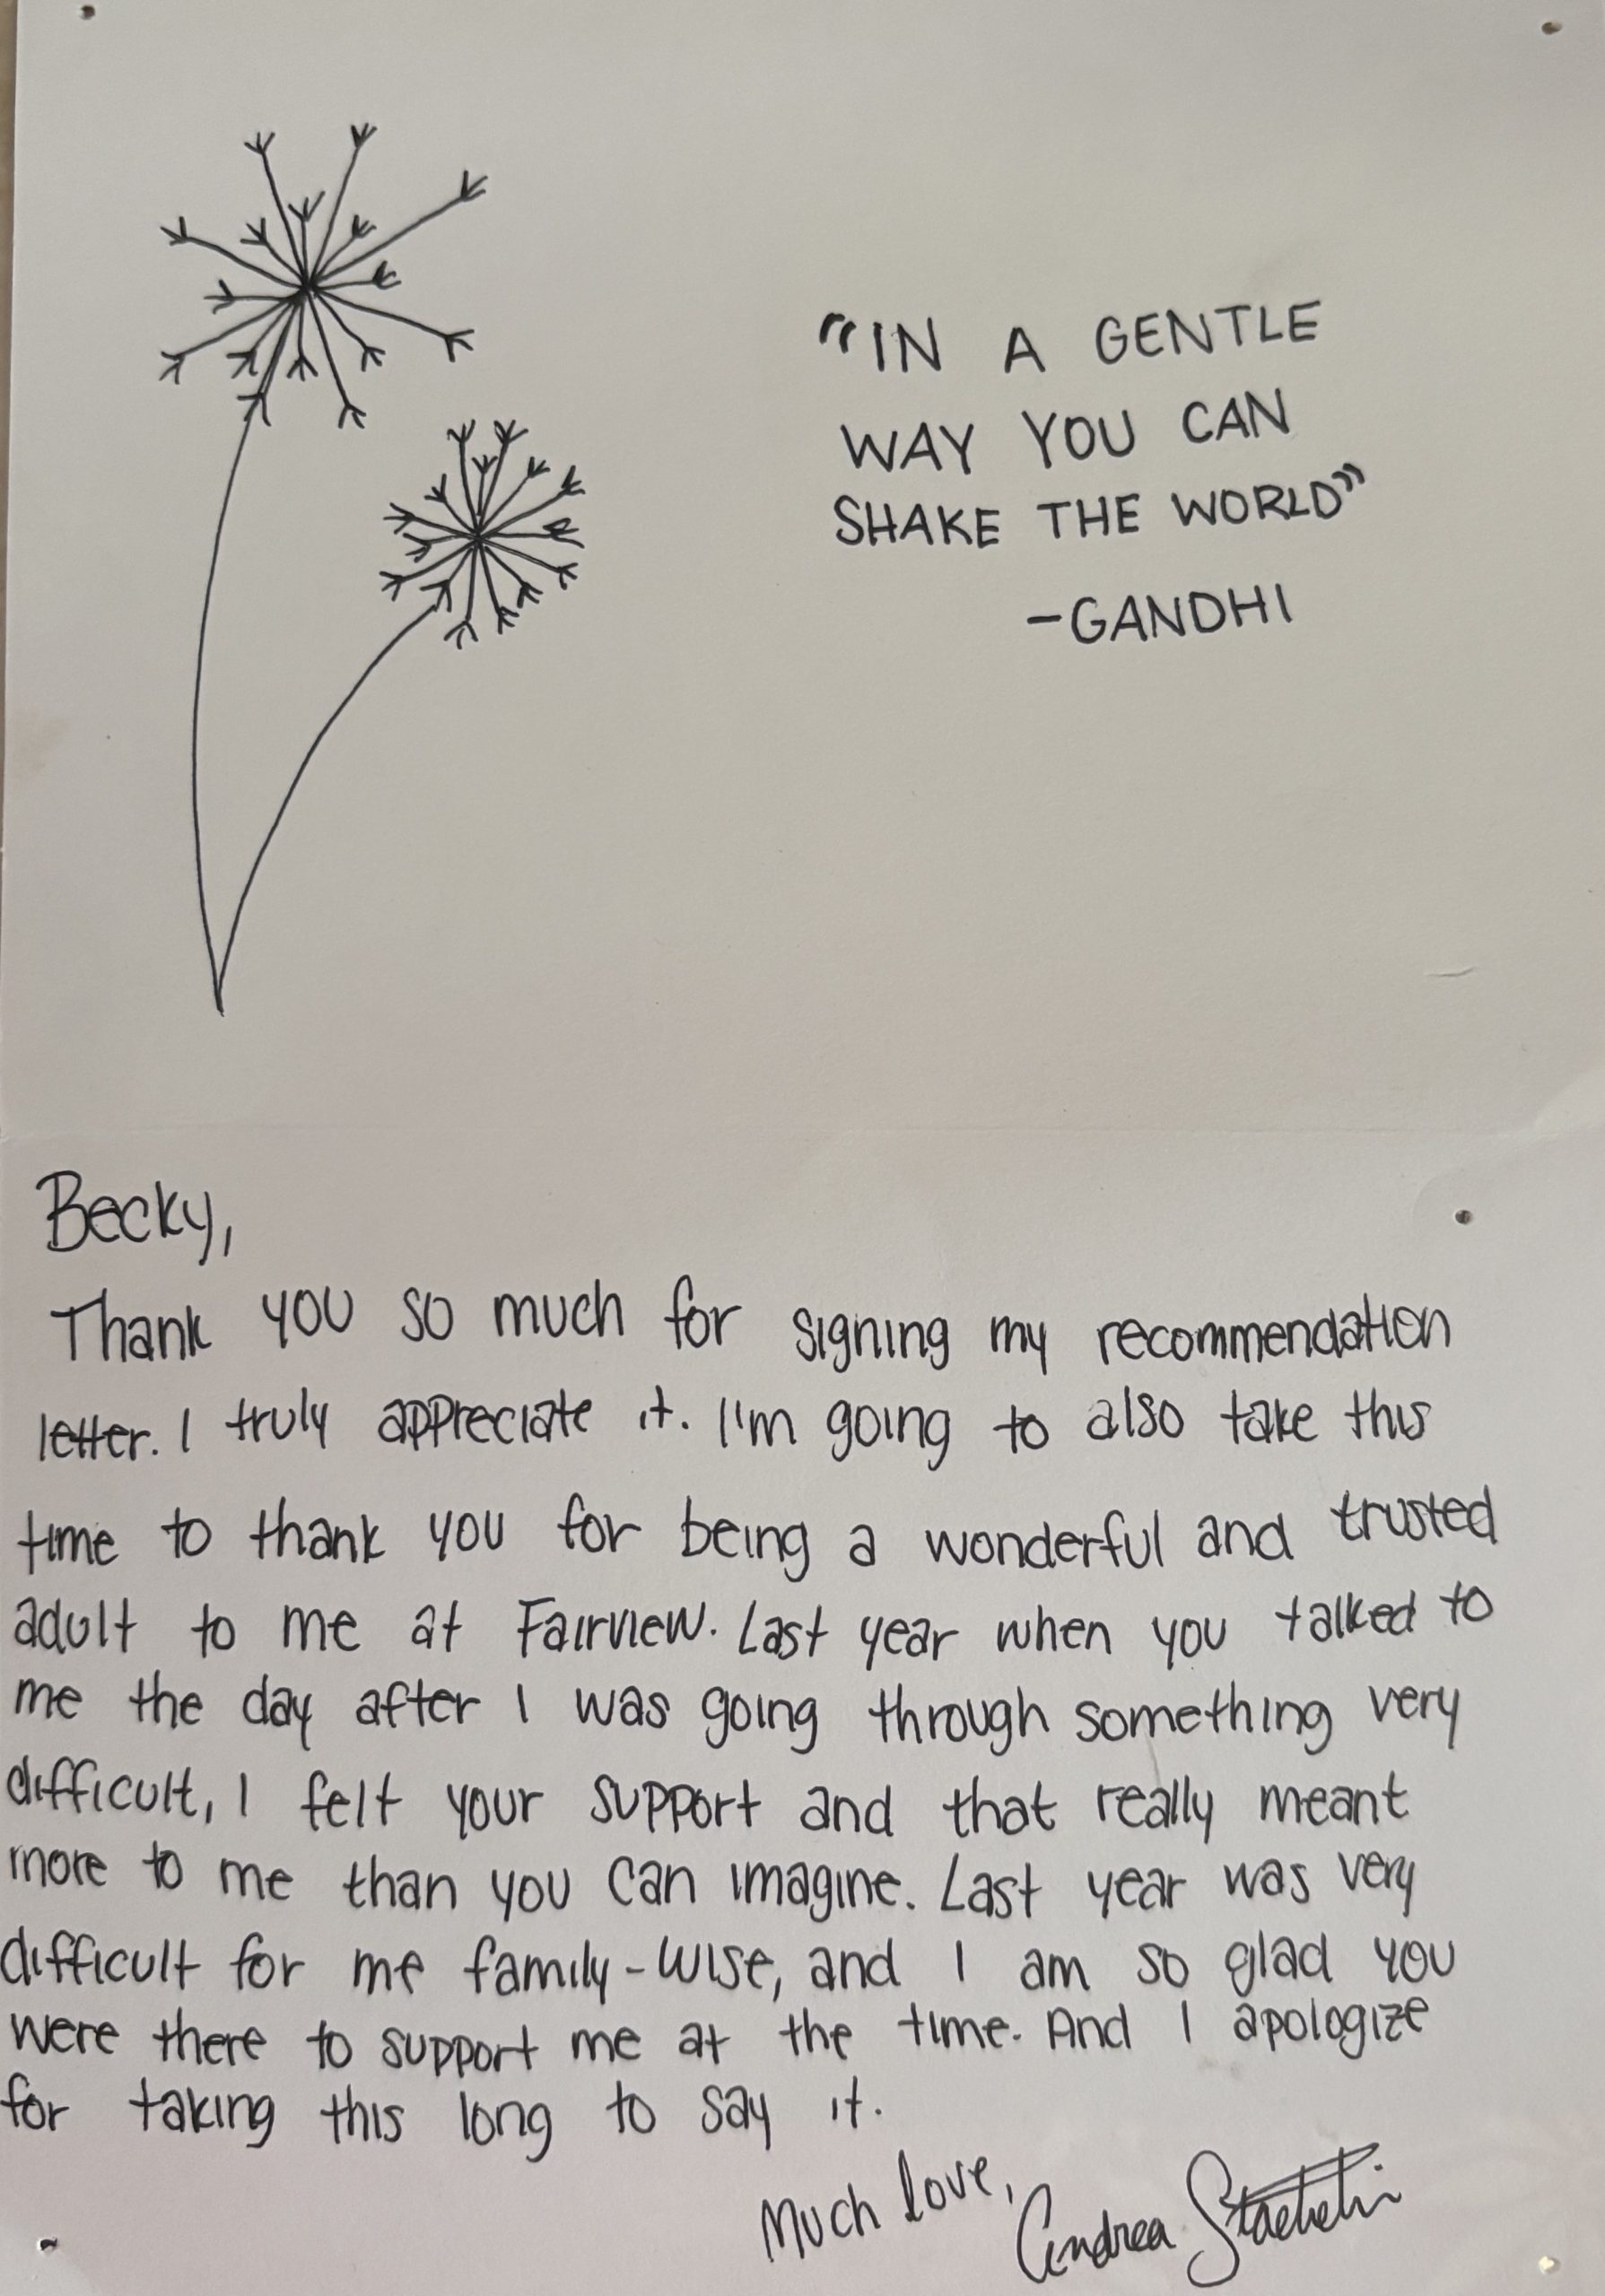 "IN A GENTLE
WAY YOU CAN
SHAKE THE WORLD"
-GANDHI
Becky,
Thank you so much for signing my recommendation
letter. I truly appreciate it. I'm going to also take this
time to thank you for being a wonderful and trusted
adult to me at Fairview. Last year when you talked to
me the day after I was going through something very
difficult, I felt your support and that really meant
more to me than you can imagine. Last year was very
difficult for me family-wise, and I am so glad you
were there to support me at the time. And I apologize
for taking this long to say it.
Much love,
Andrea